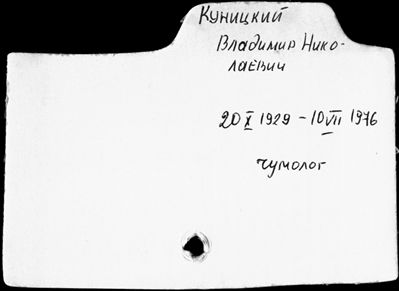 Куницкий
Владимир Нико-
лаевич
20 X 1929 - 10 VII 1976
чумолог